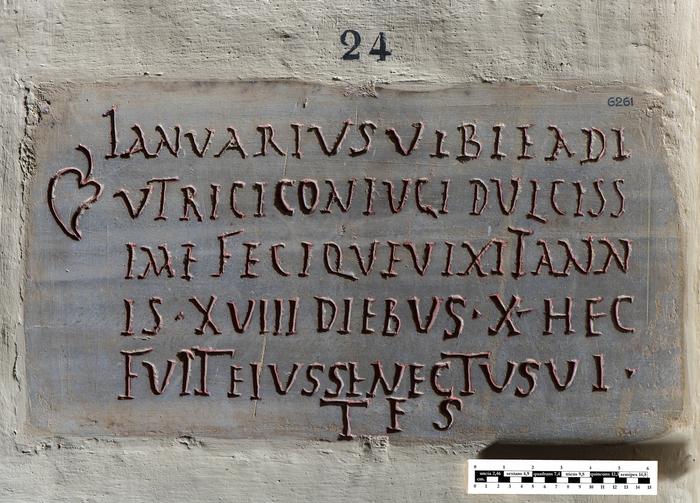 24
6261
IANVARIVS VIBIE ADI
VTRICI CONIVGI DVLCISS
IME FECI QVE VIXIT ANN
IS · XVIII DIEBVS · X · HEC
FVIT EIVS SENECTVS VI ·
T F S
0 1 2 3 4 5 6
uncia 2,46 sextans 4,9 quadrans 7,4 triens 9,8 quincunx 12,3 semipes 14,8
cm. 0 1 2 3 4 5 6 7 8 9 10 11 12 13 14 15